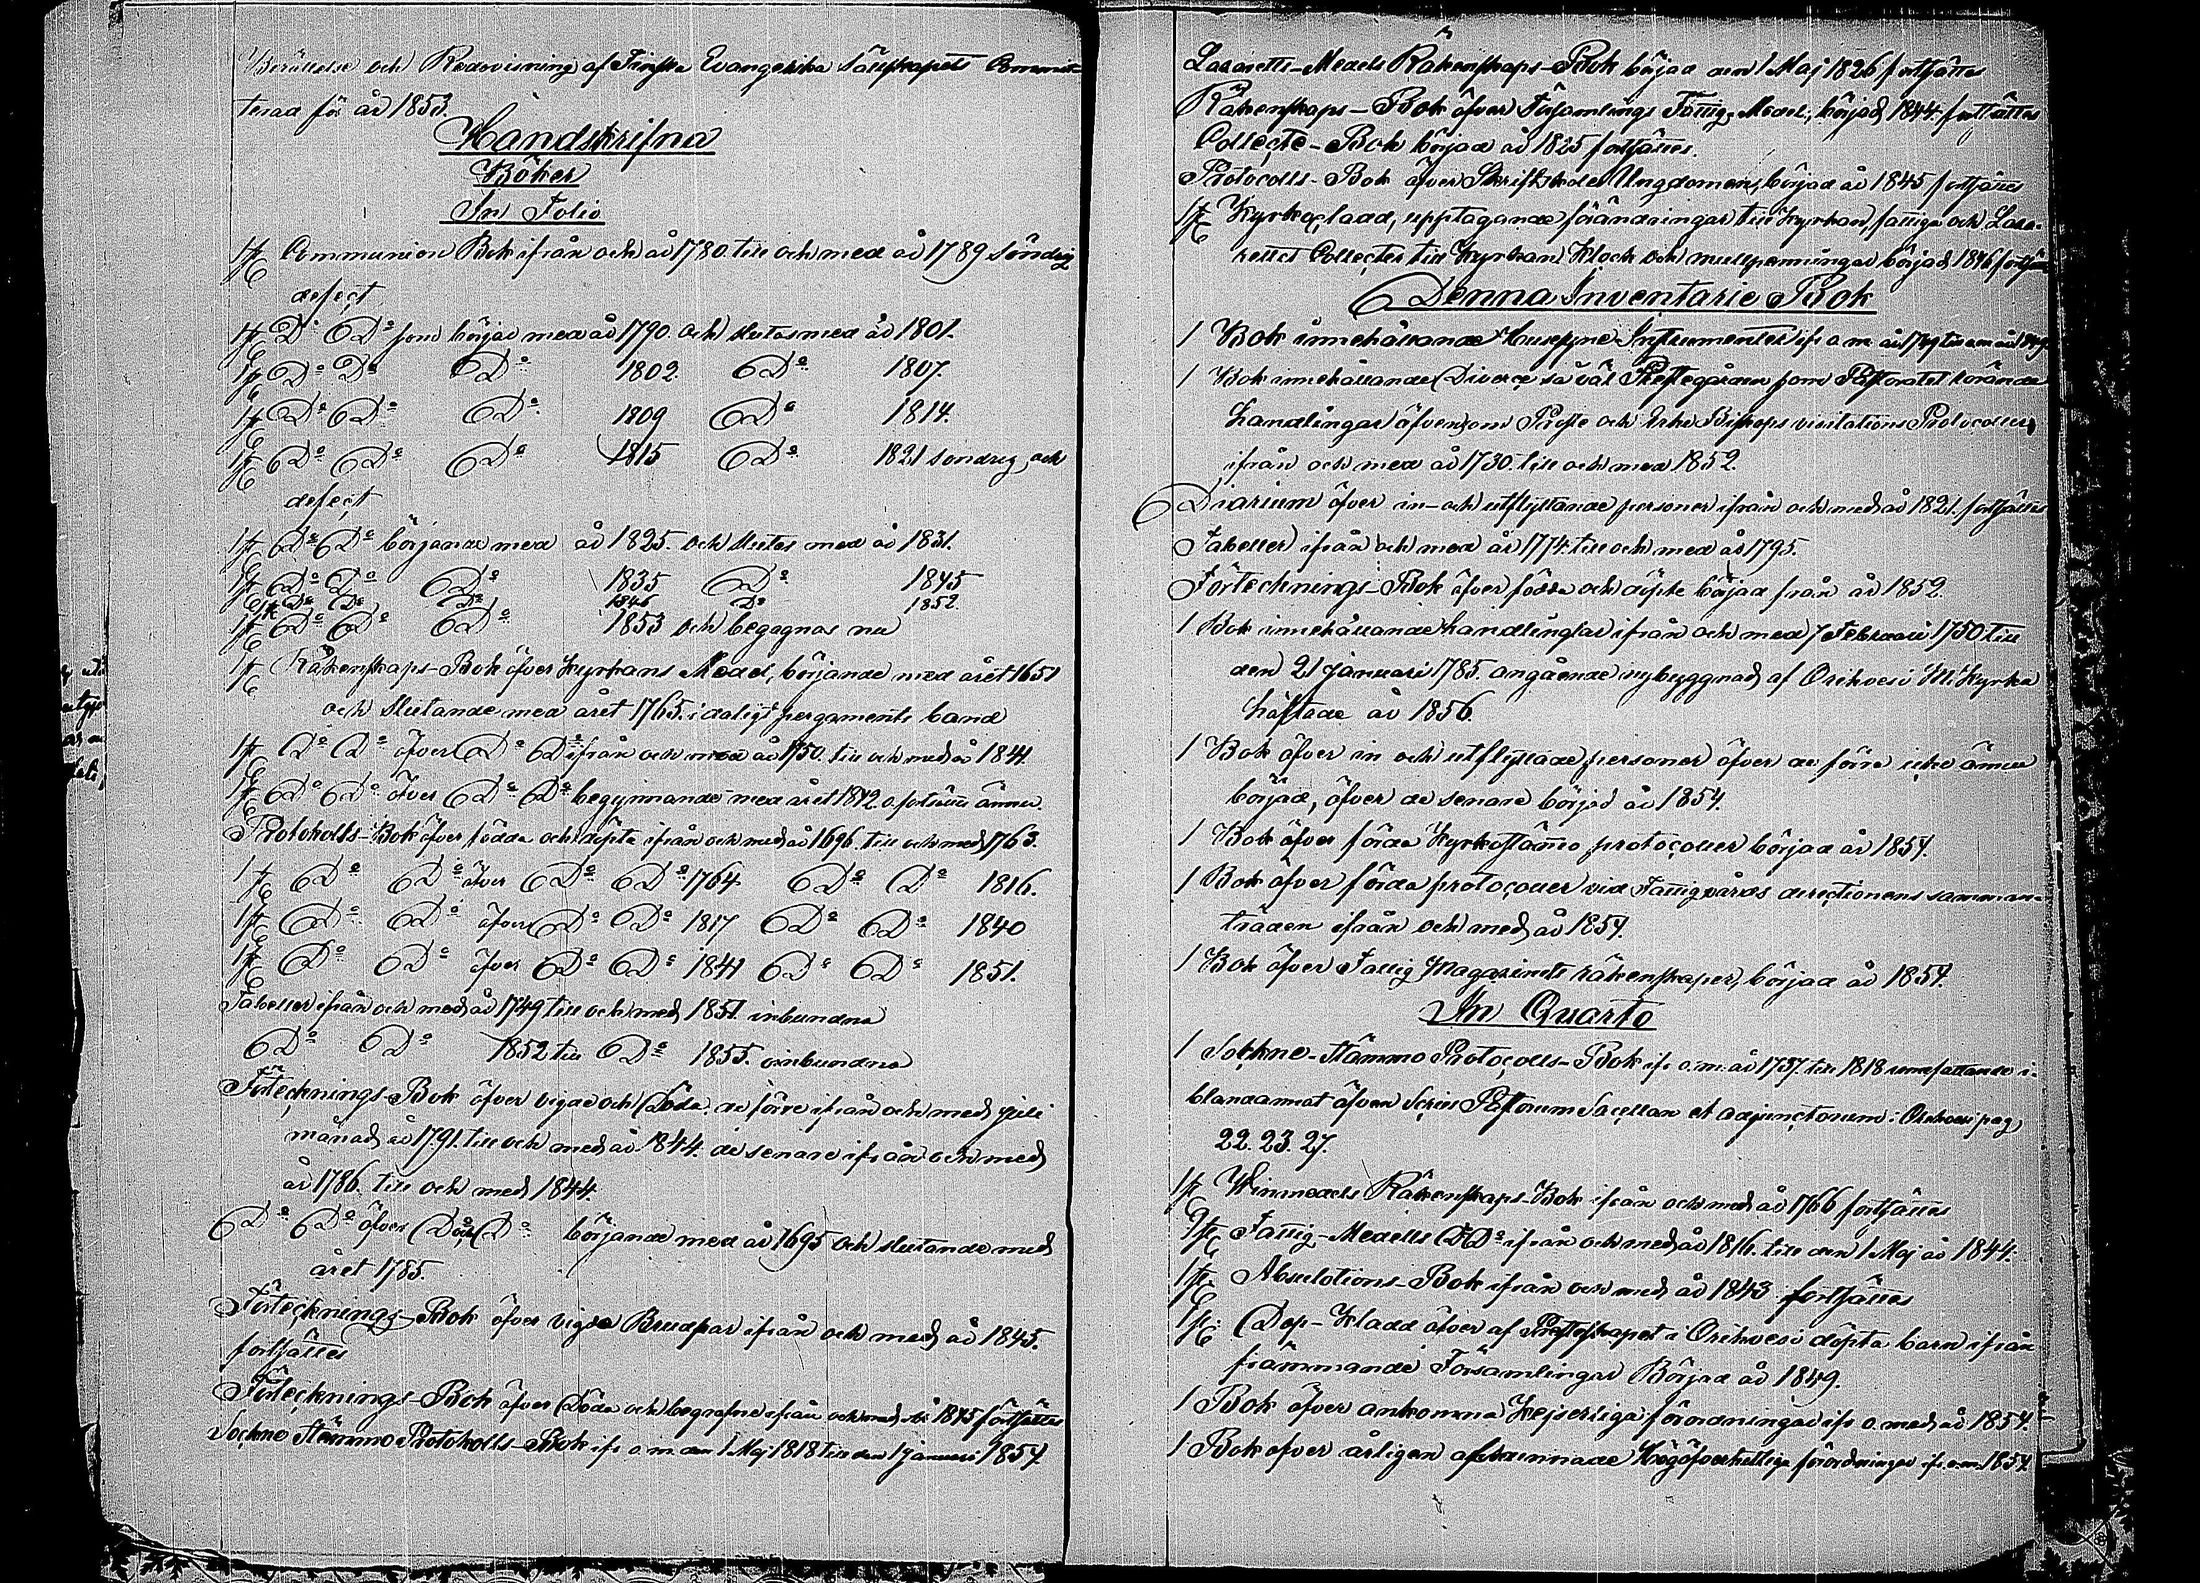 Berättelse och Redovisning af Finska Evangeliska Sällskapets Commit-
terad för år 1853.
Handskrifna
Böker
In Folio
1 st Communion Bok ifrån och år 1780. till och med år 1789 söndrig
defect
1 st Do Do som börjar med år 1790. och slutas med år 1801.
1 st Do Do Do 1802. Do 1807.
1 st Do Do Do 1809 Do 1814.
1 st Do Do Do 1815 Do 1821 söndrig och
defect
1 st Do Do börjande med år 1825. och slutas med år 1831.
1 st Do Do Do 1835 Do 1845
1 st Do Do Do 1846 Do 1852.
1 st Do Do Do 1853 och begagnas nu
1 st Räkenskaps-Bok öfver Kyrkans Medel, börjande med året 1651
och slutande med året 1765. i daligt pergaments band
1 st Do Do öfver Do Do ifrån och med år 1750. till och med år 1841.
1 st Do Do öfver Do Do begynnande med året 1842. o fortsättes ännu.
Protokolls-Bok öfver födda och döpta ifrån och med år 1696. till och med 1763.
1 st Do Do öfver Do Do 1764 Do Do 1816.
1 st Do Do öfver Do Do 1817 Do Do 1840
1 st Do Do öfver Do Do 1841 Do Do 1851.
Tabeller ifrån och med år 1749 till och med 1851. inbundna
Do Do 1852 till Do 1855. oinbundna
Förtecknings-Bok öfver vigde och Döda. de förre ifrån och med Juli
månad år 1791. till och med år 1844. de senare ifrån och med
år 1786. till och med 1844.
Do Do öfver Döda Do börjande med år 1695 och slutande med
året 1785.
Förtecknings-Bok öfver vigda Brudpar ifrån och med år 1845.
fortsättes
Förtecknings-Bok öfver Döda och begrafne ifrån och med år 1845 fortsättes
Sockne Stämmo Protokolls-Bok ifr o m den 1 Maj 1818 till den 1 Januari 1854.
Lazaretts-Medels Räkenskaps-Bok börjad den 1 Maj 1826 fortsättes
Räkenskaps-Bok öfver Församlings Fattig-Medel, börjad 1844. fortsättes
Collecte-Bok börjad år 1825 fortsättes.
Protocolls-Bok öfver Skriftskole Ungdomen, börjad år 1845 fortsättes
1 st Kyrko cladd, upptagande förändringar till Kyrkan, fattiga och Laza-
rettet Collecter till Kyrkan Klock och mullpenningar börjad 1846 fortsättes
Denna Inventarie Bok
1 Bok innehållande Husesyne Instrumenter ifr o m år 1749 till o m år 1849
1 Bok innehållande Diverse så väl Prestegården som Pastoratet rörande
handlingar äfvensom Proste och Erke Biskops visitations Protocoller,
ifrån och med år 1730. till och med 1852.
Diarium öfver in- och utflyttande personer ifrån och med år 1821. fortsättes
Tabeller ifrån och med år 1774. till och med år 1795.
Förtecknings-Bok öfver födda och döpte börjad från år 1852.
1 Bok innehållande handlingar ifrån och med 7 Februari 1750 till
den 21 Januari 1785. angående nybyggnad af Orihvesi M. Kyrka
häftade år 1856.
1 Bok öfver in och utflyttade personer öfver de förra icke ännu
börjad, öfver de senare börjad år 1854.
1 Bok öfver förda Kyrkostämmo protocoller börjad år 1854.
1 Bok öfver förda protocoller vid Fattigvårds directionens samman-
träden ifrån och med år 1854.
1 Bok öfver Fattig Magasinets räkenskaper, börjad år 1854.
In Quarto
1 Sockne-Stämmo Protocolls-Bok ifr o: m: år 1757. till 1818 innefattande i-
blandannat äfven Series Pastorum Sacellan et adjunctorum i Orihvesi pag
22. 23. 27.
1 st Winmedels Räkenskaps-Bok ifrån och med år 1766 fortsättes
1 st Fattig-Medels D. Do ifrån och med år 1816. till den 1 Maj år 1844.
1 st Absolutions-Bok ifrån och med år 1843 fortsättes
1 st Dop-Kladd öfver af Presteskapet i Orihvesi döpta barn ifrån
främmande Församlingar Börjad år 1849.
1 Bok öfver ankomna Kejserliga förordningar ifr o. med år 1854.
1 Bok öfver årligen afkunnade Högöfverhetliga förordningar ifr. o.m. 1854